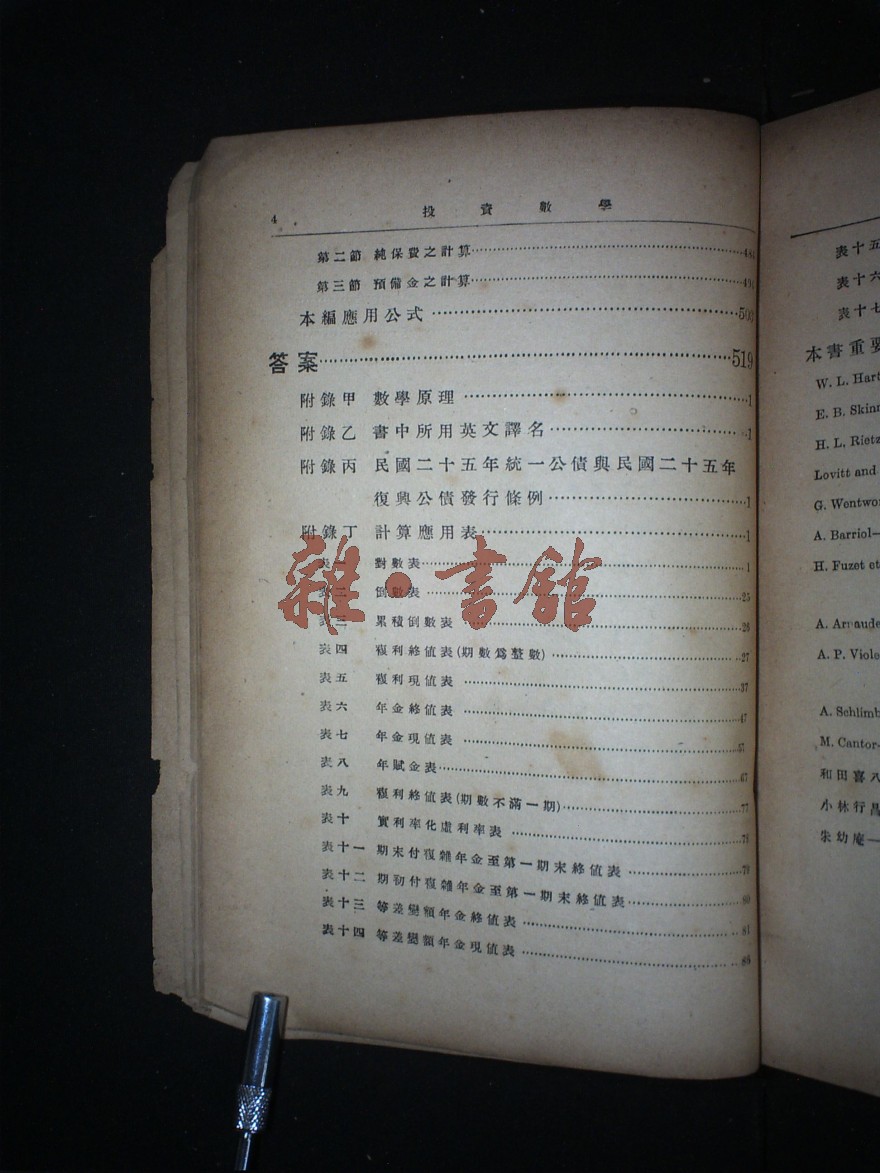 4 投資數學
第二節 純保費之計算……484
第三節 預備金之計算……494
本編應用公式……500
答案……519
附錄甲 數學原理……1
附錄乙 書中所用英文譯名……1
附錄丙 民國二十五年統一公債與民國二十五年
復興公債發行條例……1
附錄丁 計算應用表……1
表一 對數表……1
表二 倒數表……25
表三 累積倒數表……26
表四 複利終値表(期數爲整數)……27
表五 複利現値表……37
表六 年金終値表……47
表七 年金現値表……57
表八 年賦金表……67
表九 複利終値表(期數不滿一期)……77
表十 實利率化虛利率表……78
表十一 期末付複雜年金至第一期末終値表……79
表十二 期初付複雜年金至第一期末終値表……80
表十三 等差變額年金終値表……81
表十四 等差變額年金現値表……86
雜·書館
表十五
表十六
表十七
本書重要
W. L. Hart
E. B. Skinn
H. L. Rietz
Lovitt and
G. Wentwor
A. Barriol—
H. Fuzet et
A. Arnaude
A. P. Viole
A. Schlimb
M. Cantor
和田喜八
小林行昌
朱幼庵—